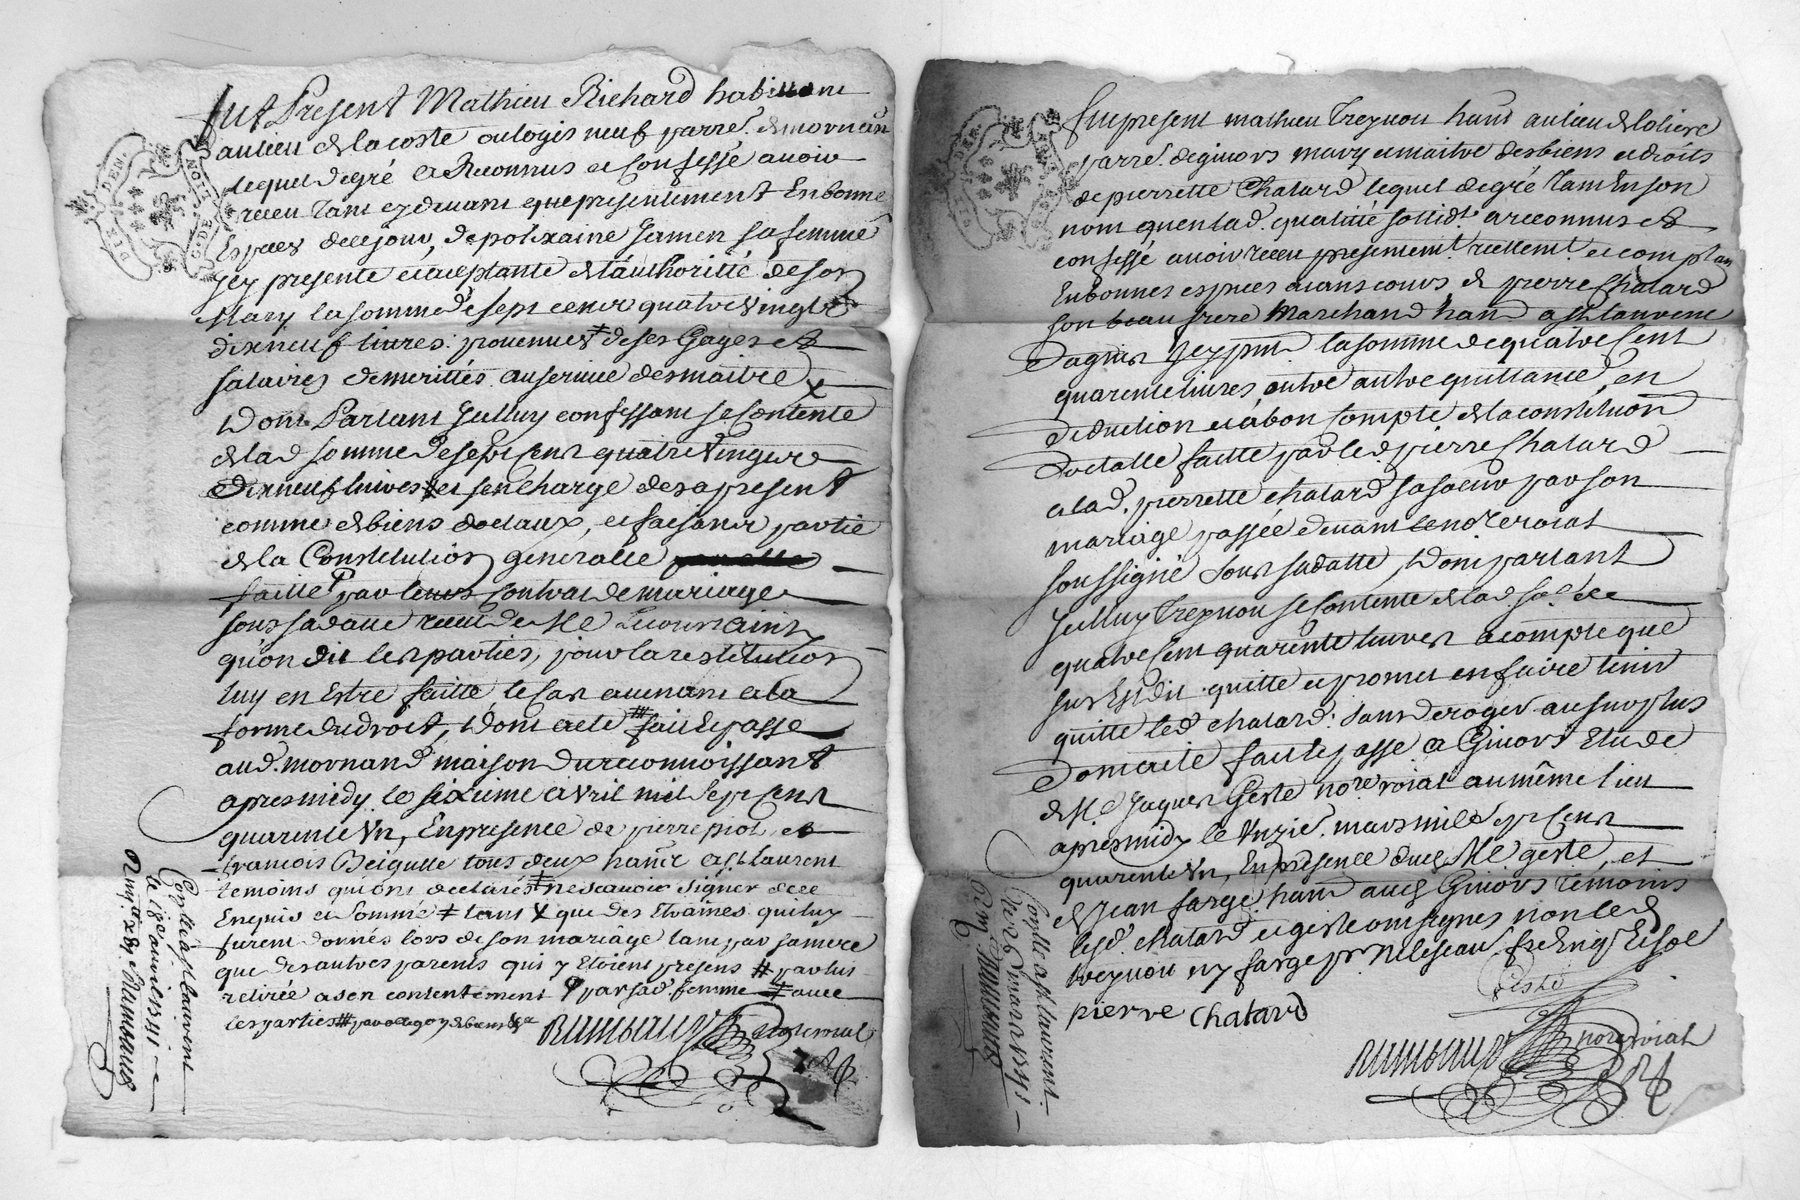 fut Present Mathieu Richard habittant
au lieu de la coste ou logis neuf parre. de mornan
lequel de gré a Reconnus et Confessé avoir
receu tant cy devant que presentement En bonne
Especes de ce jour, de polixaine jamen sa femme
jcy presente et aceptante de l'authoritté de son
Mary la somme de sept cent quatre vingt
dix neuf livres provenues de ses Gages et
salaires demerittés au service des maitre
Dont Partant jcelluy confessant se Contente
de lad somme de sept Cent quatre Vingt
dix neuf livres et s'en charge des a present
comme de biens doctaux, et faisant partie
de la Constitution generalle
faitte par leurs Contrat de mariage
sous sa datte receu de Me
qu'on dit les parties, pour la restitution
luy en Estre faitte le Cas avenant a la
forme du droit, Dont acte fait et passe
aud. mornand maison du reconnoissant
apres midy le sixieme avril mil sept Cent
quarente Un, En presence de pierre piot, et
francois tous deux hant a st Laurent
temoins qui ont declarés ne scavoir signer de ce
Enquis et Sommé tant que des Etraines qui luy
furent donnés lors de son mariage tant par sa mere
que des autres parents qui y Etoient presens par lus
retirée a son contentement par sad. femme avec
les parties
Rambaud No. royal
Con.lle a st laurent
le 18e avril 1741
Rambaud
G. DE LION
DIX DEN
fut present mathieu Treynou hant au lieu de
parre. de givors mary et maitre des biens et droits
de pierrette Chatard lequel de gré tant En son
nom qu'en lad. qualitté sollidt. a reconnus et
confessé avoir receu presentemt. reellemt. et comptan
En bonnes especes ayans cours de pierre Chatard
son beau frere Marchand hant a st laurent
dagnis jcy pnt la somme de quatre Cent
quarente livres, outre autre quittance, en
deduction et a bon Compte de la constitution
doctalle faitte par led pierre Chatard
a lad. pierrette chatard sa soeur par son
mariage passée devant le nore roial
soussigné sous sa datte, Dont partant
jcelluy Treynou se Contente de lad. so.e de
quatre Cent quarente livres a compte que
sus Est dit quitte et promet en faire tenir
quitte led chatard: sans deroger au surplus
Dont acte fait et passe a Givors Etude
de Me Jaques Geste nore roial au même lieu
apres midy le Unzie. mars mil sept Cent
quarente Un, En presence dud Me geste, et
de Jean farge hant aud Givors temoins
lesd. chatard et geste ont signés non led
treynou ny farge pr. ne le scau. fre Enqs. et soe
Geste
pierre Chatard
Rambaud nore roial
Con.lle a st laurent
1741
Rambaud
DIX DEN